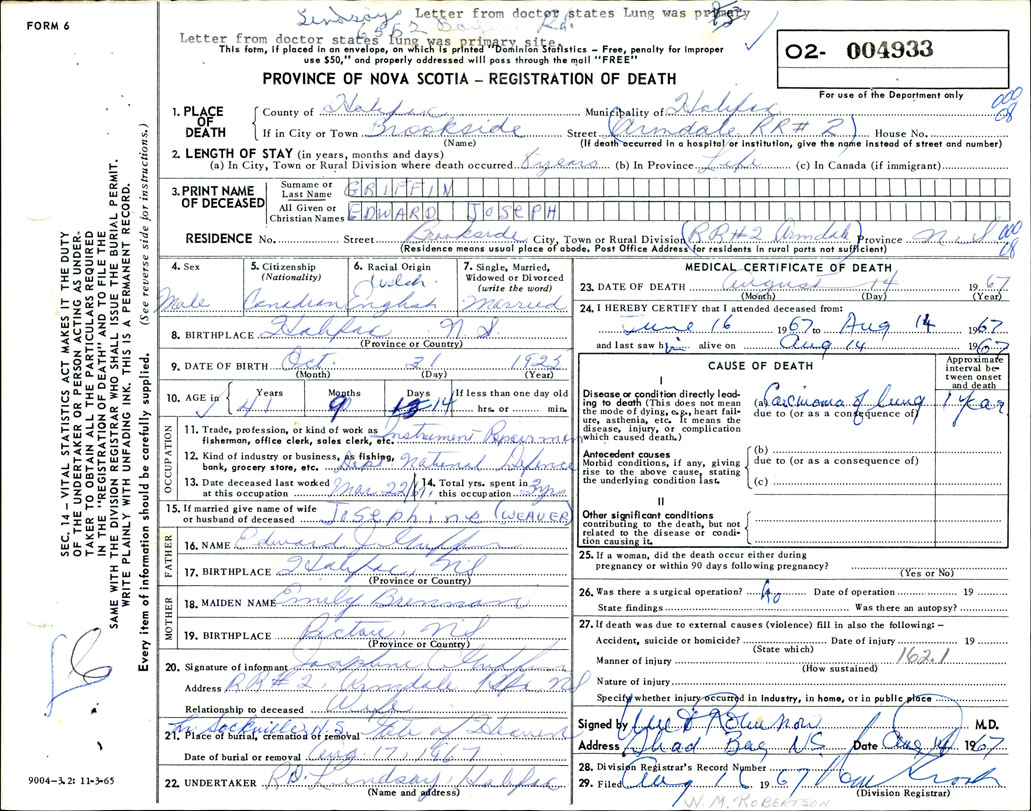 FORM 6
Lindsay
6552 Bayers Rd.
Letter from doctor states Lung was primary
Letter from doctor states lung was primary site.
This form, if placed in an envelope, on which is printed "Dominion Statistics – Free, penalty for improper
use $50," and properly addressed will pass through the mail "FREE"
PROVINCE OF NOVA SCOTIA – REGISTRATION OF DEATH
02- 004933
For use of the Department only
SEC. 14 – VITAL STATISTICS ACT MAKES IT THE DUTY
OF THE UNDERTAKER OR PERSON ACTING AS UNDER-
TAKER TO OBTAIN ALL THE PARTICULARS REQUIRED
IN THE "REGISTRATION OF DEATH" AND TO FILE THE
SAME WITH THE DIVISION REGISTRAR WHO SHALL ISSUE THE BURIAL PERMIT.
WRITE PLAINLY WITH UNFADING INK. THIS IS A PERMANENT RECORD.
Every item of information should be carefully supplied. (See reverse side for instructions.)
1. PLACE OF DEATH
County of Halifax Municipality of Halifax 000 08
If in City or Town Brookside Street (Armdale RR# 2) House No.
(Name) (If death occurred in a hospital or institution, give the name instead of street and number)
2. LENGTH OF STAY (in years, months and days)
(a) In City, Town or Rural Division where death occurred. 8 years (b) In Province Life (c) In Canada (if immigrant)
3. PRINT NAME OF DECEASED
Surname or Last Name GRIFFIN
All Given or Christian Names EDWARD JOSEPH
RESIDENCE No. Street Brookside City, Town or Rural Division (RR#2 Armdale) Province N.S 000 08
(Residence means usual place of abode. Post Office Address for residents in rural parts not sufficient)
4. Sex
Male
5. Citizenship
(Nationality)
Canadian
6. Racial Origin
Welch
English
7. Single, Married,
Widowed or Divorced
(write the word)
Married
8. BIRTHPLACE Halifax N.S
(Province or Country)
9. DATE OF BIRTH Oct. 31 1925
(Month) (Day) (Year)
10. AGE in Years Months Days If less than one day old
41 9 14 hrs. or min.
OCCUPATION
11. Trade, profession, or kind of work as
fisherman, office clerk, sales clerk, etc. Instrument Repairman
12. Kind of industry or business, as fishing,
bank, grocery store, etc. Dept National Defence
13. Date deceased last worked
at this occupation Mar 22/67
14. Total yrs. spent in
this occupation 3 yrs
15. If married give name of wife
or husband of deceased Josephine (WEAVER)
FATHER
16. NAME Edward J. Griffin
17. BIRTHPLACE Halifax, NS
(Province or Country)
MOTHER
18. MAIDEN NAME Emily Brennan
19. BIRTHPLACE Pictou, NS
(Province or Country)
20. Signature of informant Josephine C Griffin
Address RR#2, Armdale Hfx, NS
Relationship to deceased Wife
Lr Sackville N.S.
21. Place of burial, cremation or removal Gate of Heaven
Date of burial or removal Aug. 17, 1967
22. UNDERTAKER R.D. Lindsay, Halifax
(Name and address)
9004-3.2: 11-3-65
MEDICAL CERTIFICATE OF DEATH
23. DATE OF DEATH August 14 1967
(Month) (Day) (Year)
24. I HEREBY CERTIFY that I attended deceased from:
June 16 1967 to Aug 14 1967
and last saw him alive on Aug 14 1967
CAUSE OF DEATH
Approximate interval between onset and death
I
Disease or condition directly lead-
ing to death (This does not mean
the mode of dying, e.g., heart fail-
ure, asthenia, etc. It means the
disease, injury, or complication
which caused death.)
(a) Carcinoma of lung 1 year
due to (or as a consequence of)
Antecedent causes
Morbid conditions, if any, giving
rise to the above cause, stating
the underlying condition last.
(b)
due to (or as a consequence of)
(c)
II
Other significant conditions
contributing to the death, but not
related to the disease or condi-
tion causing it.
25. If a woman, did the death occur either during
pregnancy or within 90 days following pregnancy?
(Yes or No)
26. Was there a surgical operation? No Date of operation 19
State findings Was there an autopsy?
27. If death was due to external causes (violence) fill in also the following: –
Accident, suicide or homicide? Date of injury 19
(State which)
Manner of injury 162.1
(How sustained)
Nature of injury
Specify whether injury occurred in Industry, in home, or in public place
Signed by M.D.
Address Shad Bay NS Date Aug 14 1967
28. Division Registrar's Record Number
29. Filed Aug 16 1967
(Division Registrar)
W. M. ROBERTSON